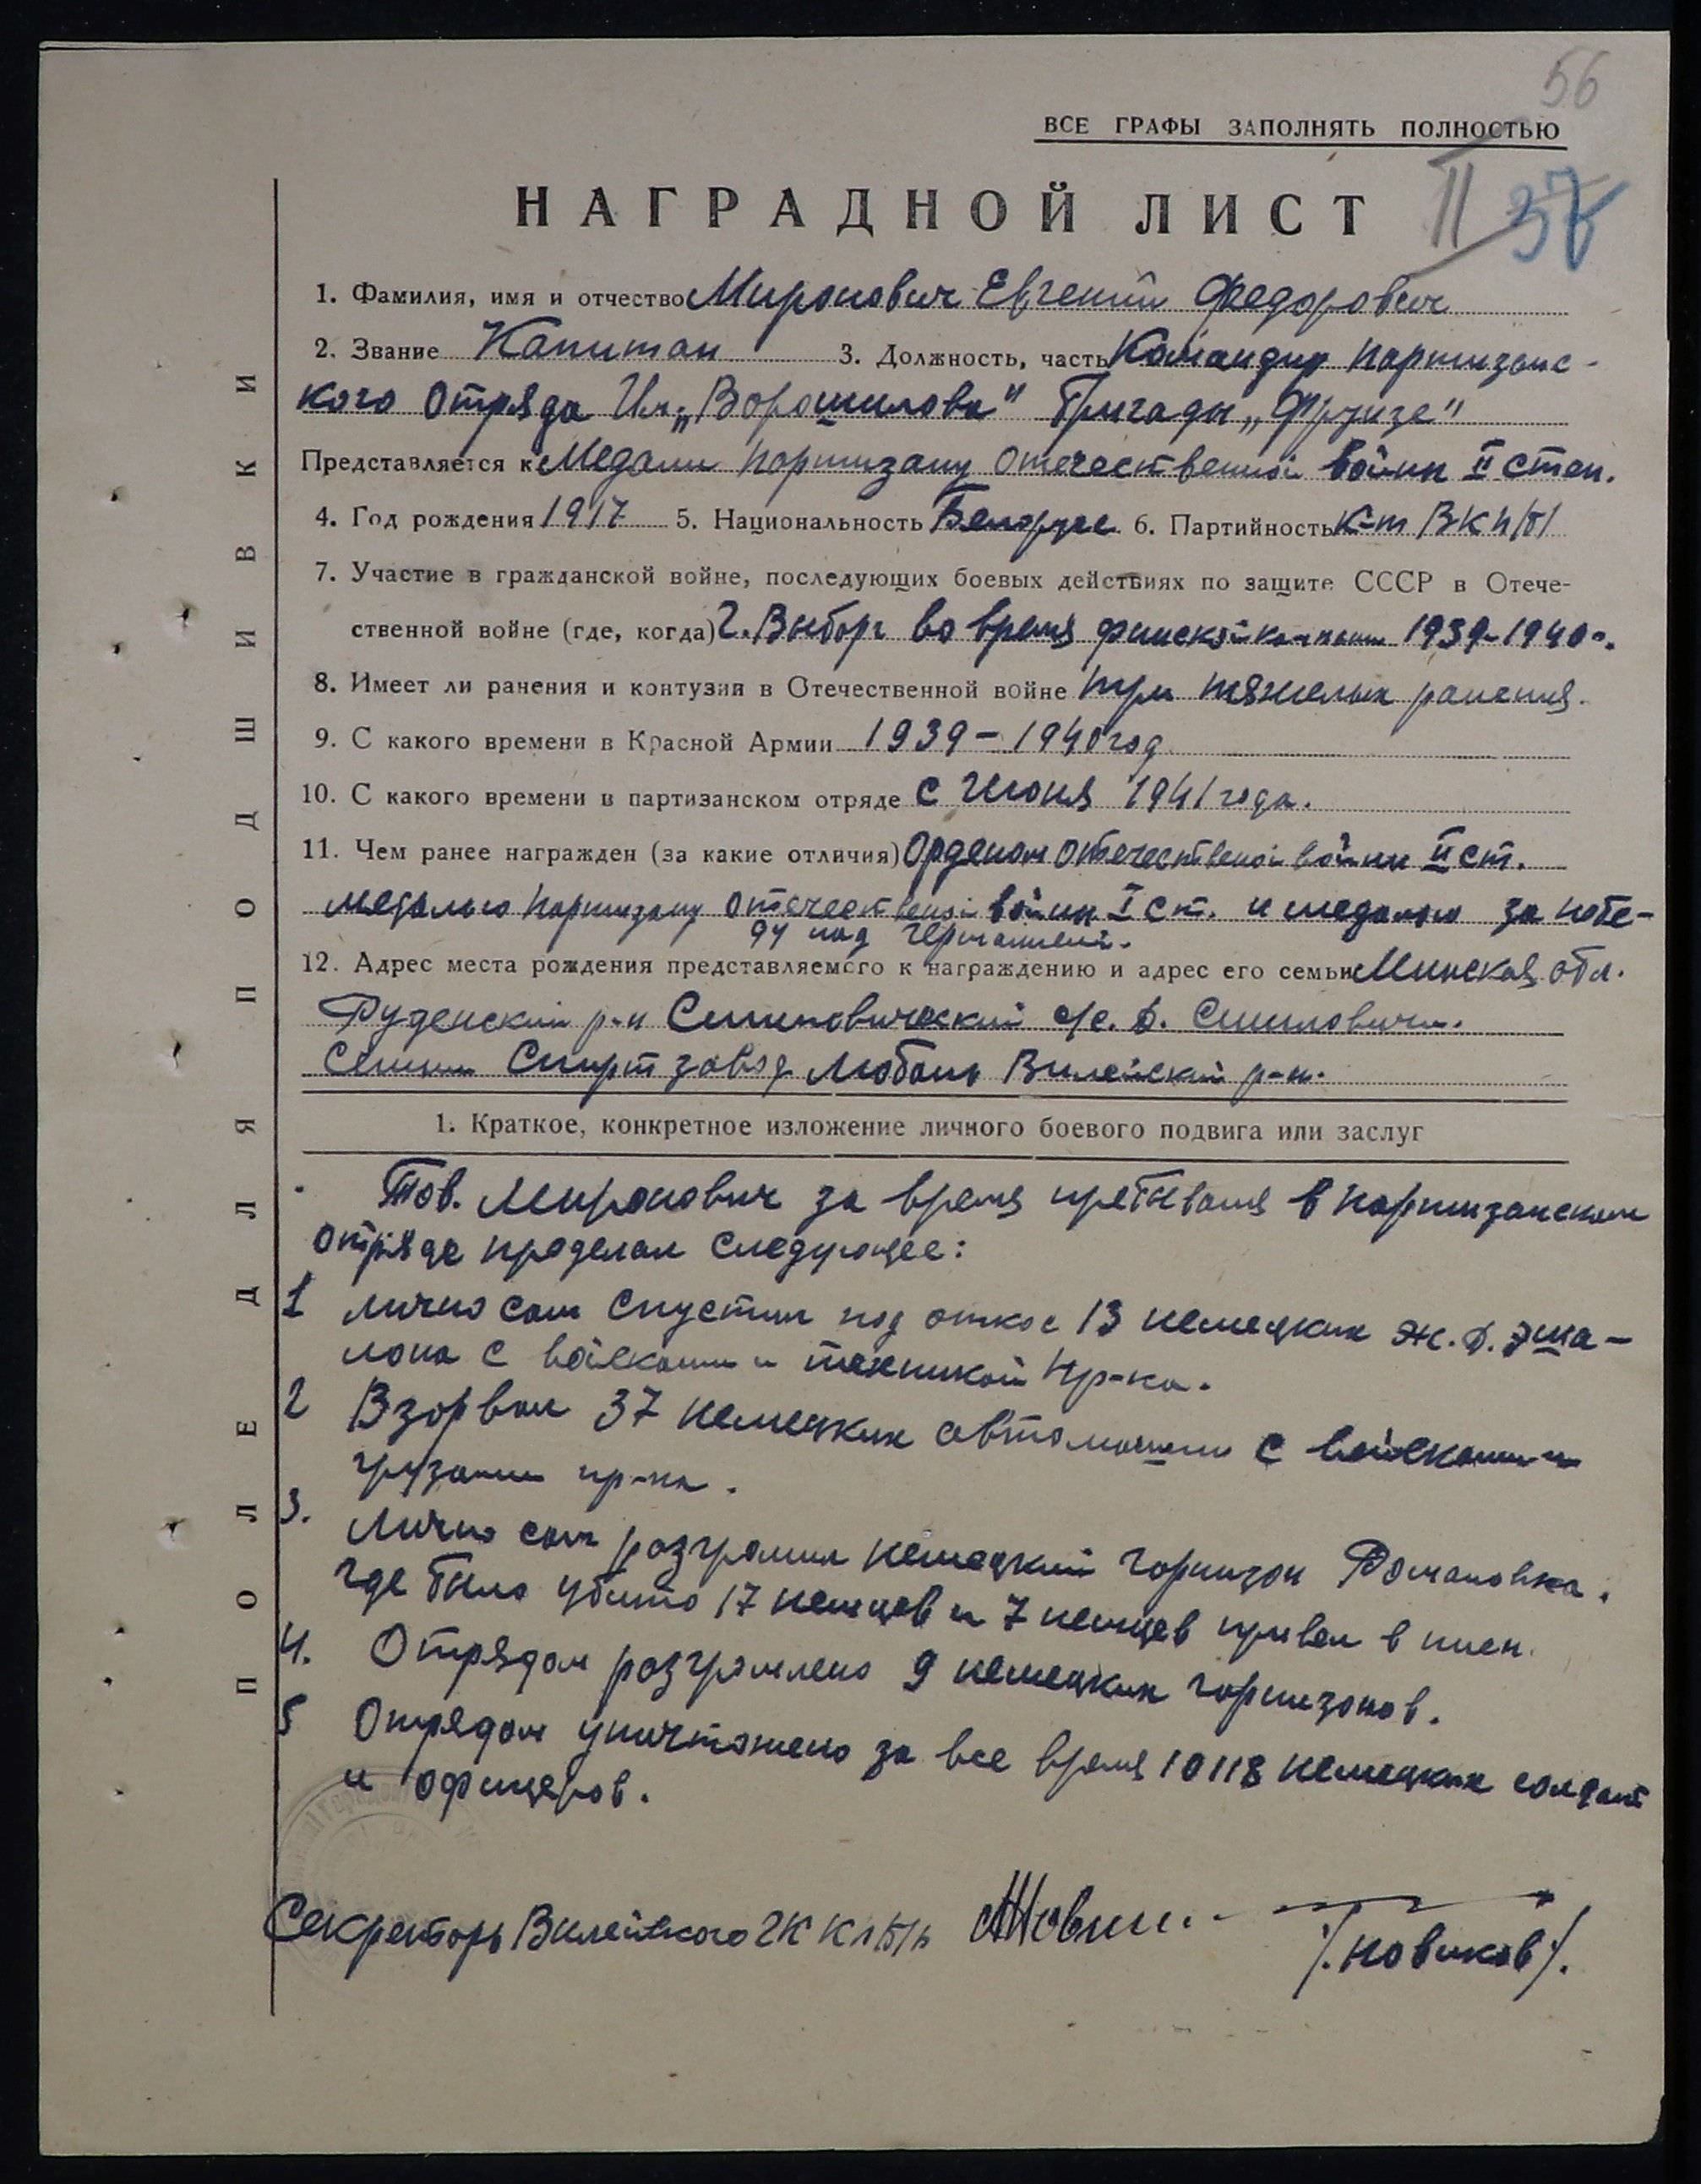 56
ВСЕ ГРАФЫ ЗАПОЛНЯТЬ ПОЛНОСТЬЮ
II 37
НАГРАДНОЙ ЛИСТ
1. Фамилия, имя и отчество Миронович Евгений Федорович
2. Звание Капитан 3. Должность, часть Командир партизанс-
кого отряда Им. „Ворошилова" Бригады „Фрунзе"
Представляется к Медали партизану отечественной войны II степ.
4. Год рождения 1917 5. Национальность Белорус 6. Партийность К-т ВКП/б/
7. Участие в гражданской войне, последующих боевых действиях по защите СССР в Отече-
ственной войне (где, когда) г. Выборг во время финской кампании 1939-1940г.
8. Имеет ли ранения и контузии в Отечественной войне три тяжелых ранения.
9. С какого времени в Красной Армии 1939-1940 год
10. С какого времени в партизанском отряде с Июня 1941 года.
11. Чем ранее награжден (за какие отличия) Орденом отечественой войны II ст.
медалью партизану отечественой войны I ст. и медалью за побе-
ду над германией.
12. Адрес места рождения представляемого к награждению и адрес его семьи Минская обл.
Руденский р-н с/с. д.
Спиртзавод Любань Вилейский р-н.
1. Краткое, конкретное изложение личного боевого подвига или заслуг
Тов. Миронович за время пребывания в партизанском
отряде проделал следующее:
1 лично сам спустил под откос 13 немецких ж.д. эша-
лона с войсками и техникой пр-ка.
2 Взорвал 37 немецких автомашин с войсками и
грузами пр-ка.
3. Лично сам разгромил немецкий гарнизон Романовка.
где было убито 17 немцев и 7 немцев привел в плен.
4. Отрядом разгромлено 9 немецких гарнизонов.
5 Отрядом уничтожено за все время 10118 немецких солдат
и офицеров.
Секретарь Вилейского ГК КП/б/Б /Новиков/.
ПОЛЕ ДЛЯ ПОДШИВКИ